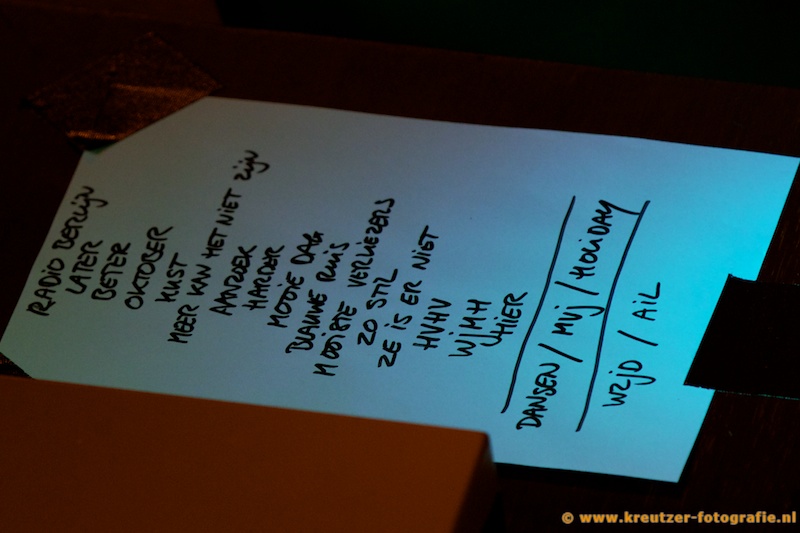 RADIO BERLIJN
LATER
BETER
OKTOBER
KUST
MEER KAN HET NIET ZIJN
AANZOEK
HARDER
MOOIE DAG
BLAUWE RUIS
MOOISTE VERLIEZERS
ZO STIL
ZE IS ER NIET
HVHV
WIMH
HIER
DANSEN / MIJ / HOLIDAY
WZJD / AIL
© www.kreutzer-fotografie.nl